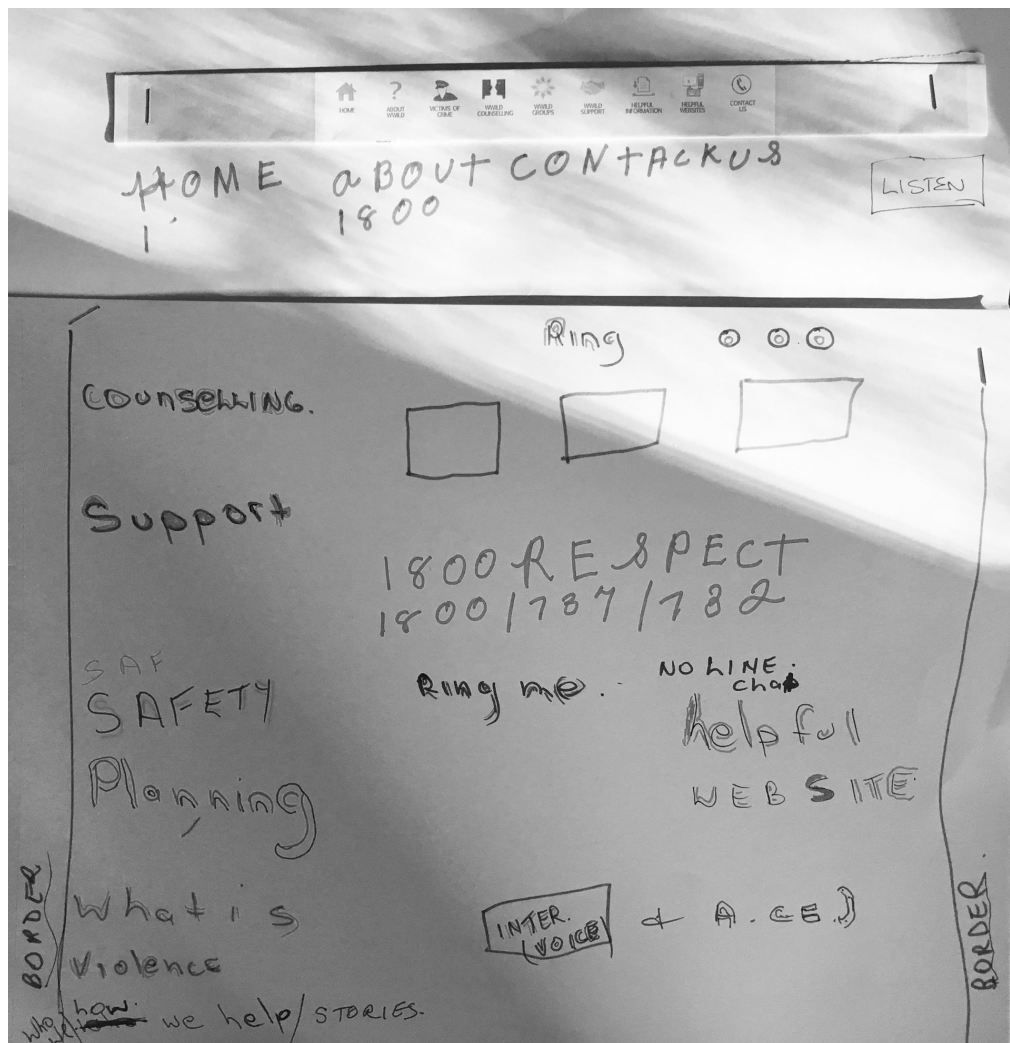 HOME
ABOUT WWILD
VICTIMS OF CRIME
WWILD COUNSELLING
WWILD GROUPS
WWILD SUPPORT
HELPFUL INFORMATION
HELPFUL WEBSITES
CONTACT US
HOME aBOUt CONtACKUS
1800
LISTEN
Ring
COUnSeLLING.
Support
1800 RESPECT
1800/737/732
SAF
SAFETY
Planning
Ring me.
NO LINE.
helpful
WEB SITE
What is
Violence
how we help/STORIES.
INTER.
(VOICE)
BORDER
BORDER.